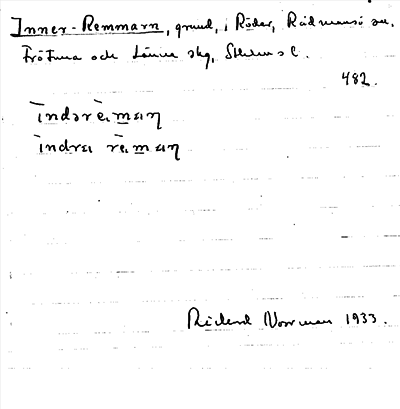 Inner-Remmarn, grund, i Röder, Rådmansö sn.
Frötuna och Länna skg, Sthlms l.
482.
īndərēman
īndra rēman
Rickard Norrman 1933.